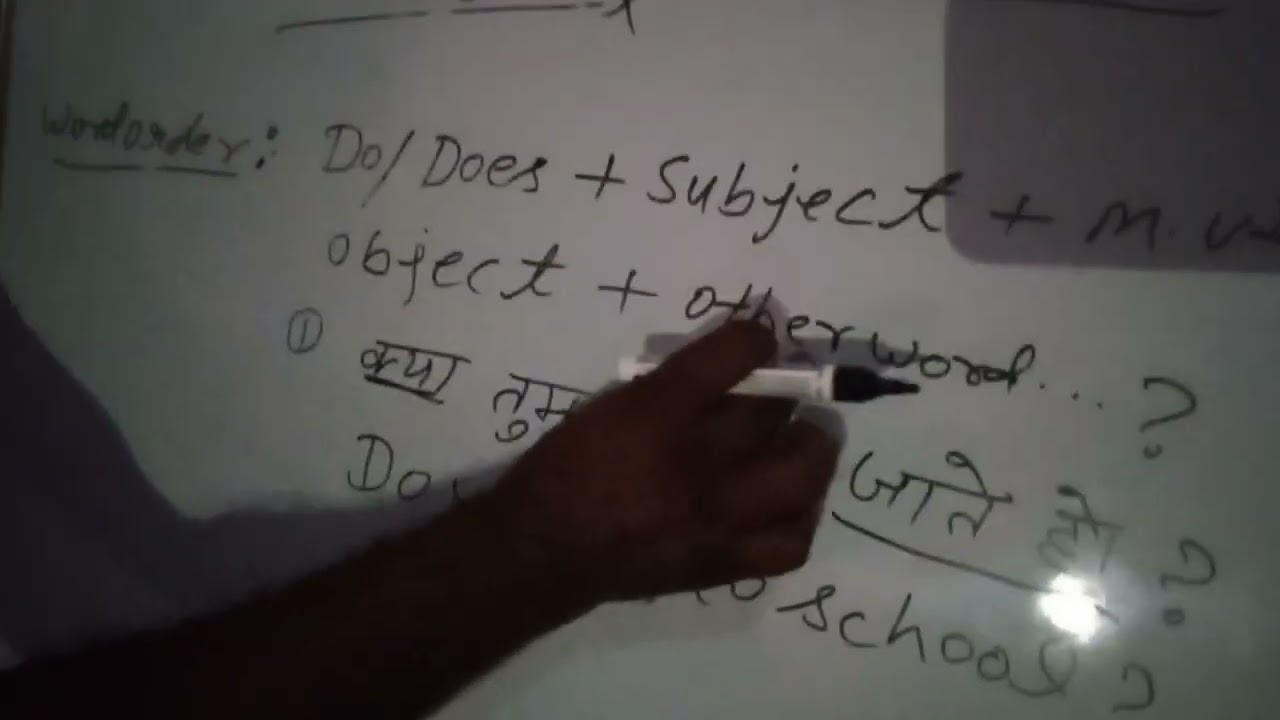 Wordorder: Do/Does + Subject + M.V+
object + otherword...?
① क्या तुम जाते हो ?
Do to school ?